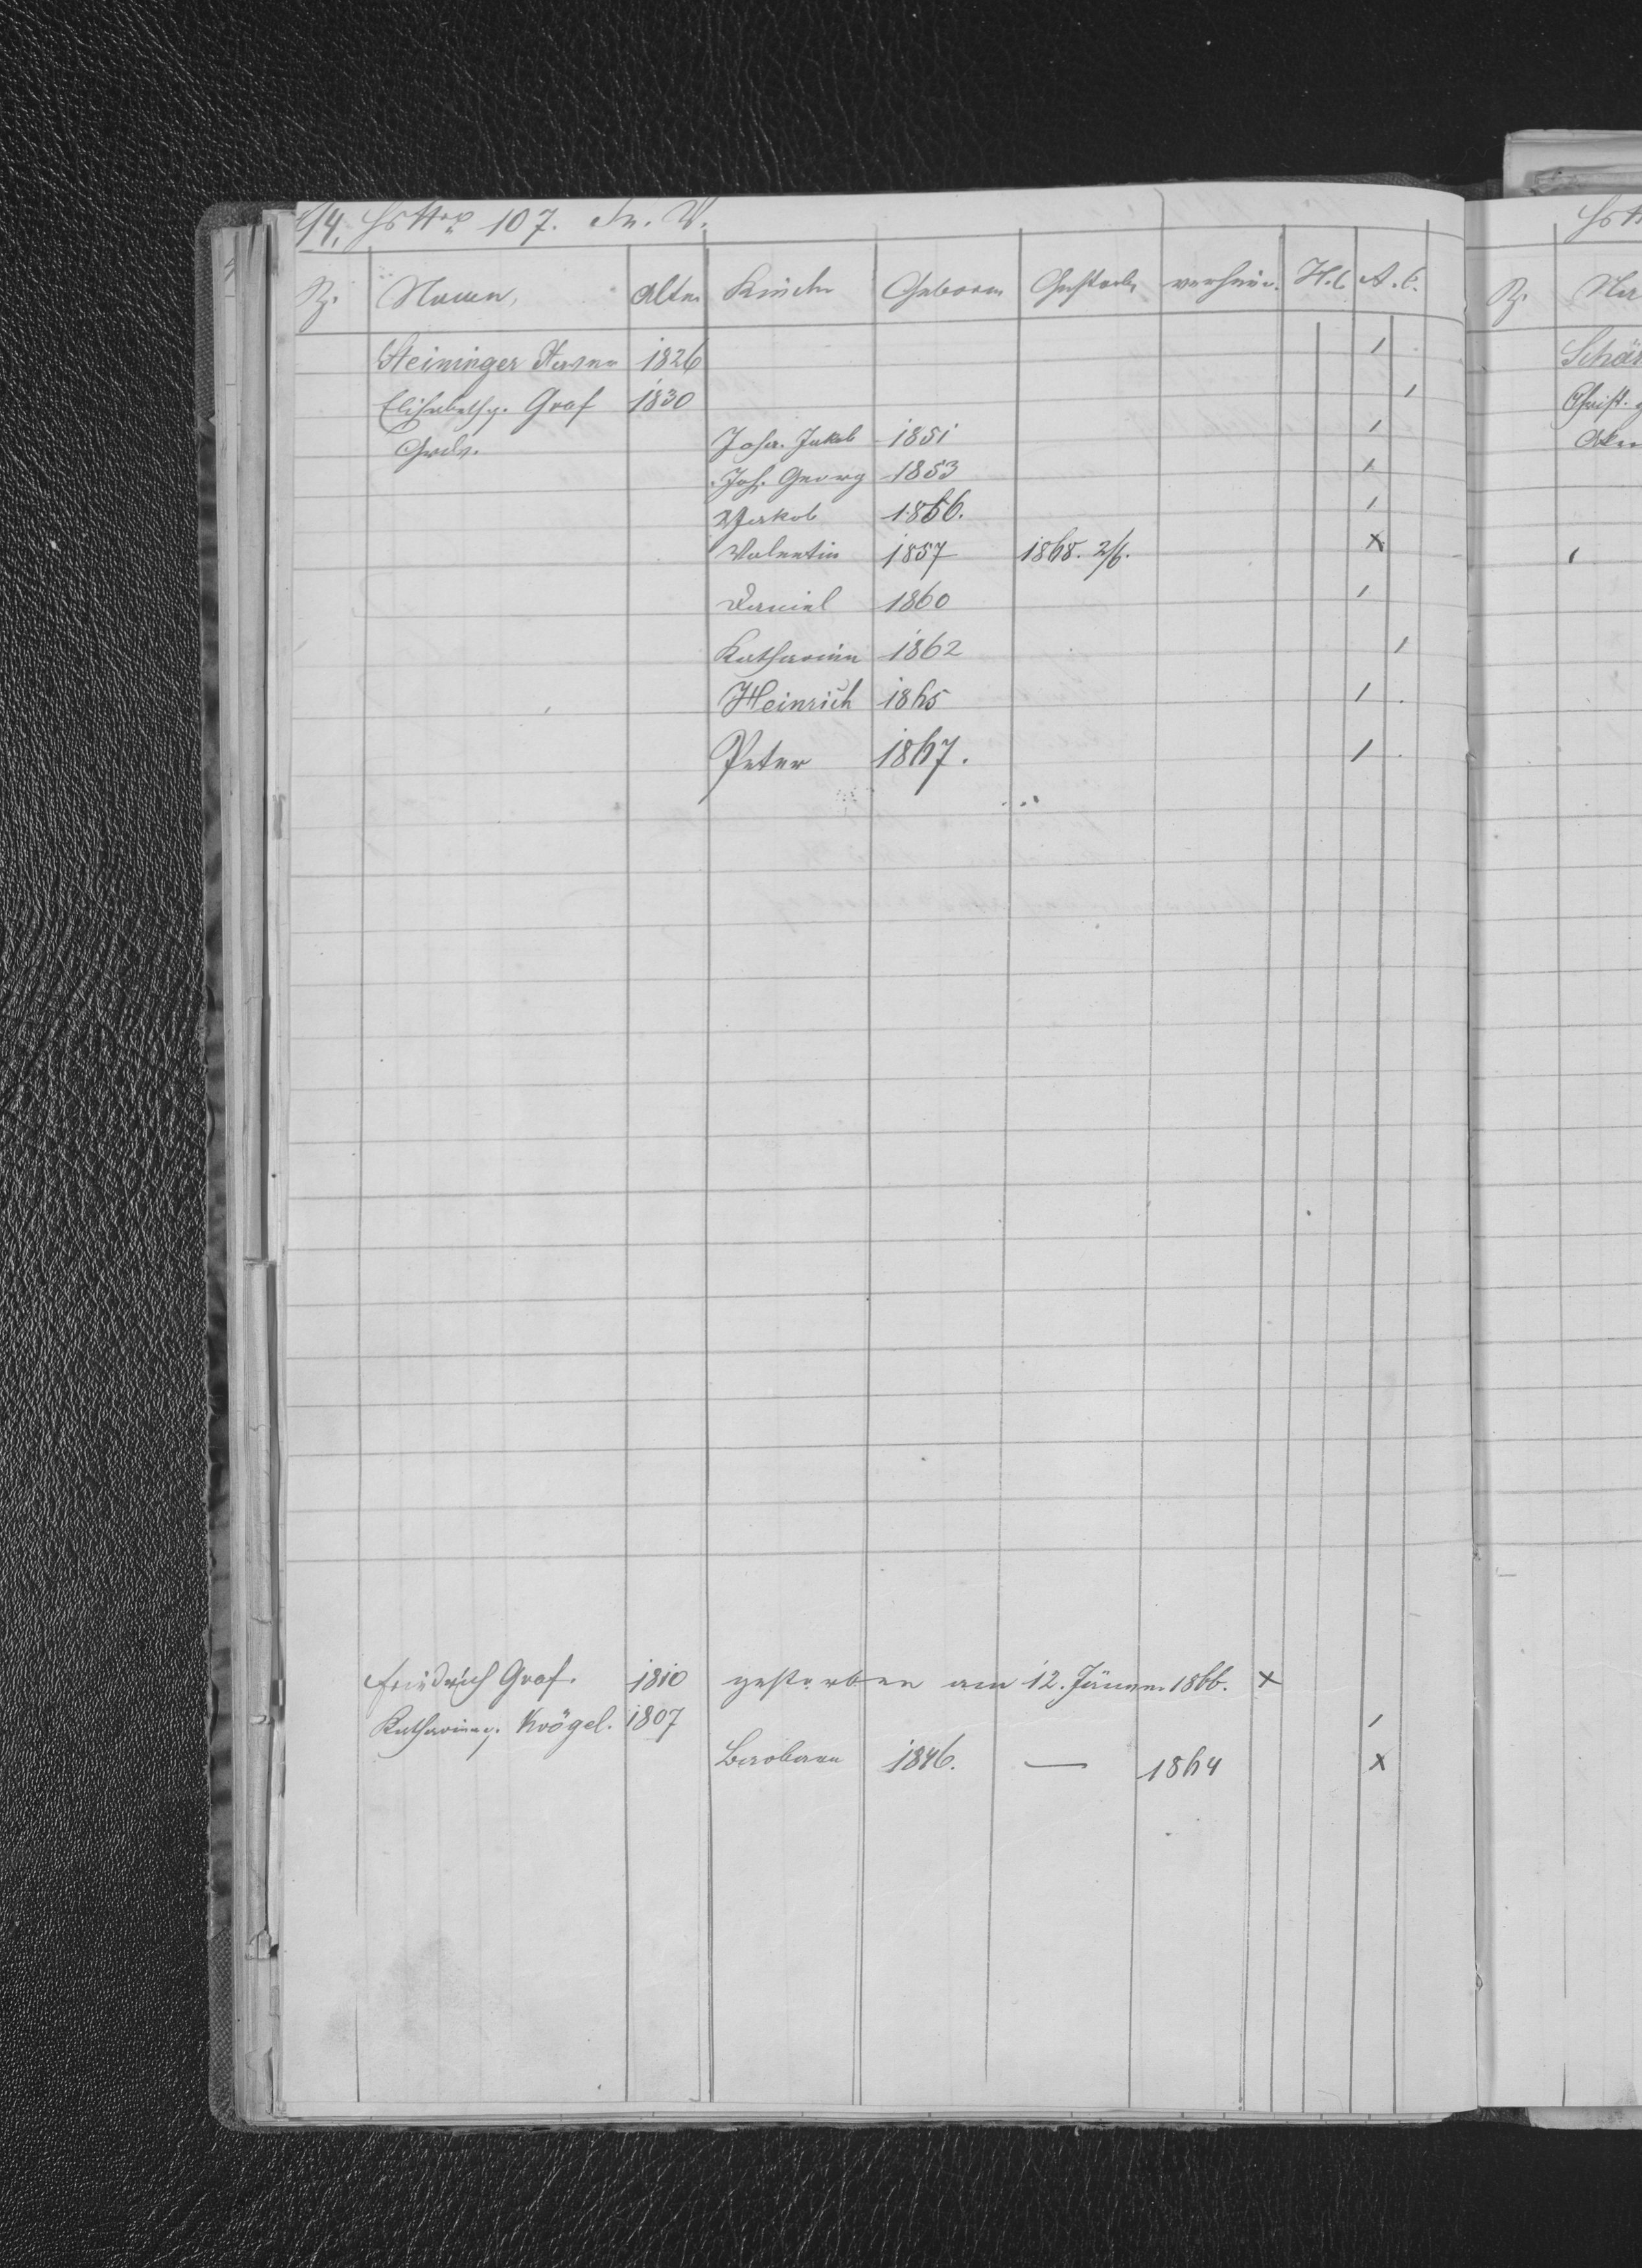 107.
Z. Namen, Alter Kinder Geboren Gestorb. verheir. H.C. A.C.
Steininger 1826
Elisabeth g. Graf 1830
Joha. Jakob 1851
Joh. Georg 1853
Jakob 1856.
Valentin 1857 1868. 2/6.
Daniel 1860
Katharina 1862
Heinrich 1865
Peter 1867.
Friedrich Graf. 1810 gestorben am 12. Jänner 1866. x
Katharina g. Krögel. 1807
Barbara 1846. — 1864 x
Z.
Christ.